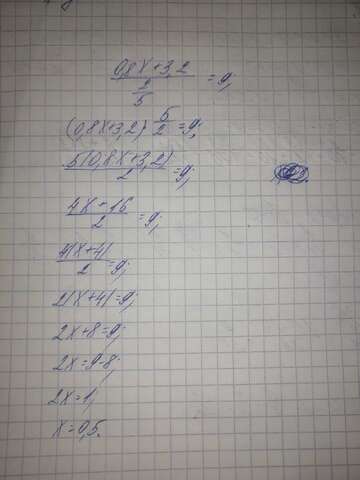 (0,8x+3,2)/(2/5) =9;
(0,8x+3,2) 5/2 =9;
5(0,8x+3,2)/2 =9;
4x+16/2 =9;
4(x+4)/2 =9;
2(x+4)=9;
2x+8=9;
2x=9-8;
2x=1;
x=0,5.